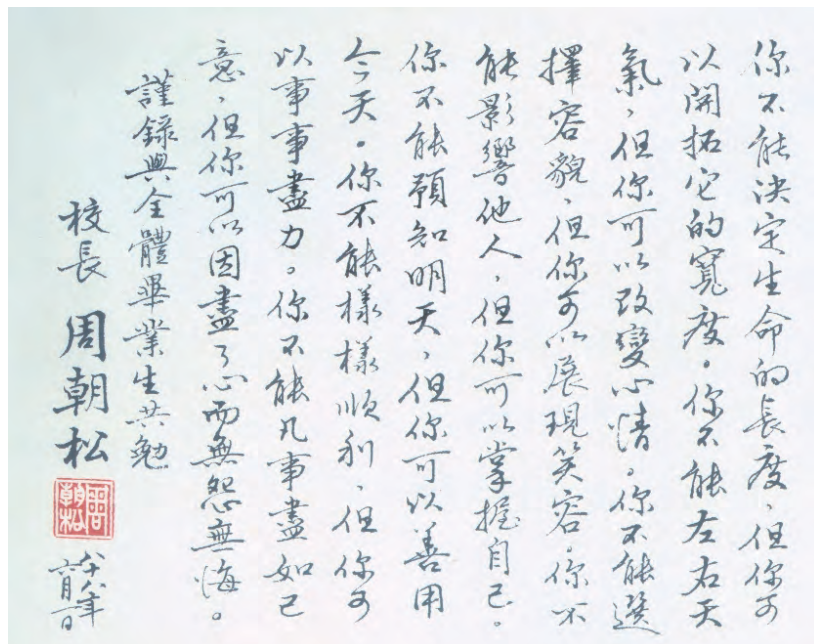 你不能決定生命的長度，但你可
以開拓它的寬度。你不能左右天
氣，但你可以改變心情。你不能選
擇容貌，但你可以展現笑容。你不
能影響他人，但你可以掌握自己。
你不能預知明天，但你可以善用
今天。你不能樣樣順利，但你可
以事事盡力。你不能凡事盡如己
意，但你可以因盡了心而無怨無悔。
謹錄與全體畢業生共勉
校長 周朝松
周朝松
八十八年
六月一日